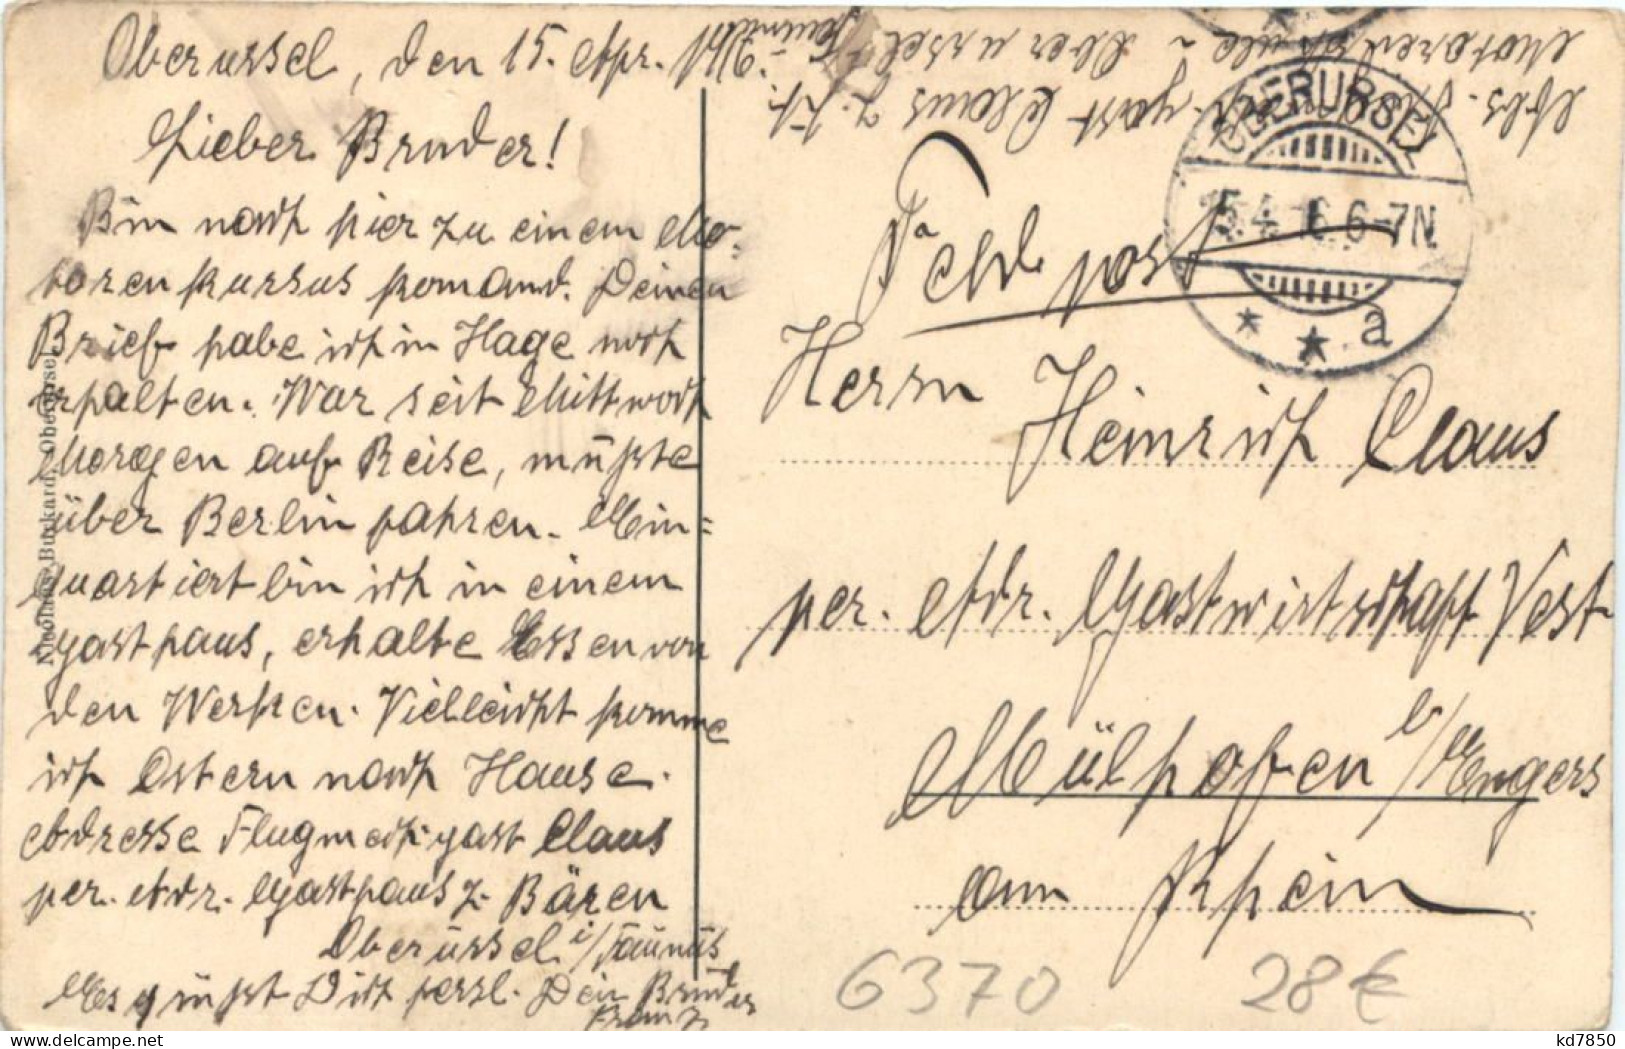 Oberursel, den 15. Apr. 1916.
Lieber Bruder!
Bin noch hier zu einem Mo-
toren kursus komand. Deinen
Brief habe ich in Hage noch
erhalten. War seit Mittwoch
Morgen auf Reise, müßte
über Berlin fahren. Ein=
quartiert bin ich in einem
Gasthaus, erhalte Essen von
den Werken. Vielleicht komme
ich Ostern nach Hause.
Adresse Flugm Claus
per. Adr. Gasthaus z. Bären
Oberursel i/Taunus
Es grüßt Dich herzl. Dein Bruder
Franz
Nicolaus Burkard, Oberursel
Abs. Claus z. Zt.
Motorenschule - Oberursel Taunus
OBERURSEL
15.4.16. 6-7N.
* * a
Feldpost
Herrn
Heinrich Claus
per. Adr. Gastwirtschaft Vest
Mülhofen b/Engers
am Rhein
6370
28€
kd7850